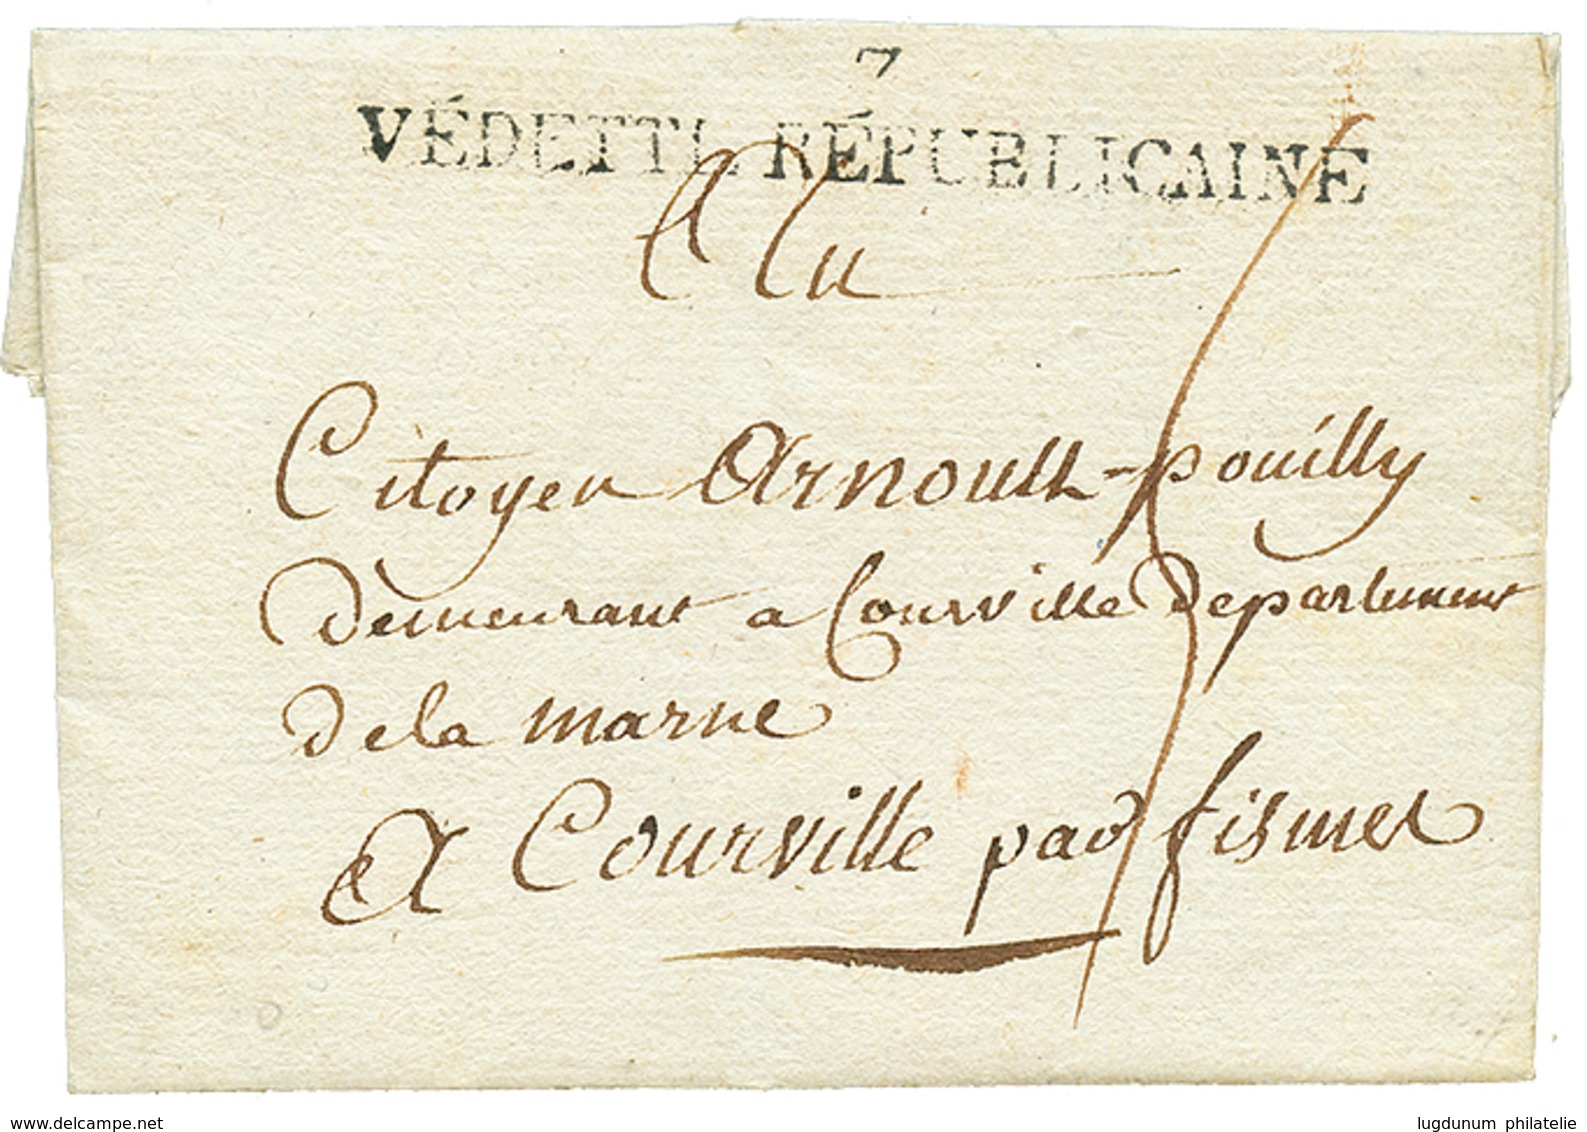 7
VÉDETTE RÉPUBLICAINE
Au
Citoyen Arnoult-pouilly
demeurant a Courville Departement
de la marne
A Courville par fismes
www.delcampe.net
lugdunum philatelie